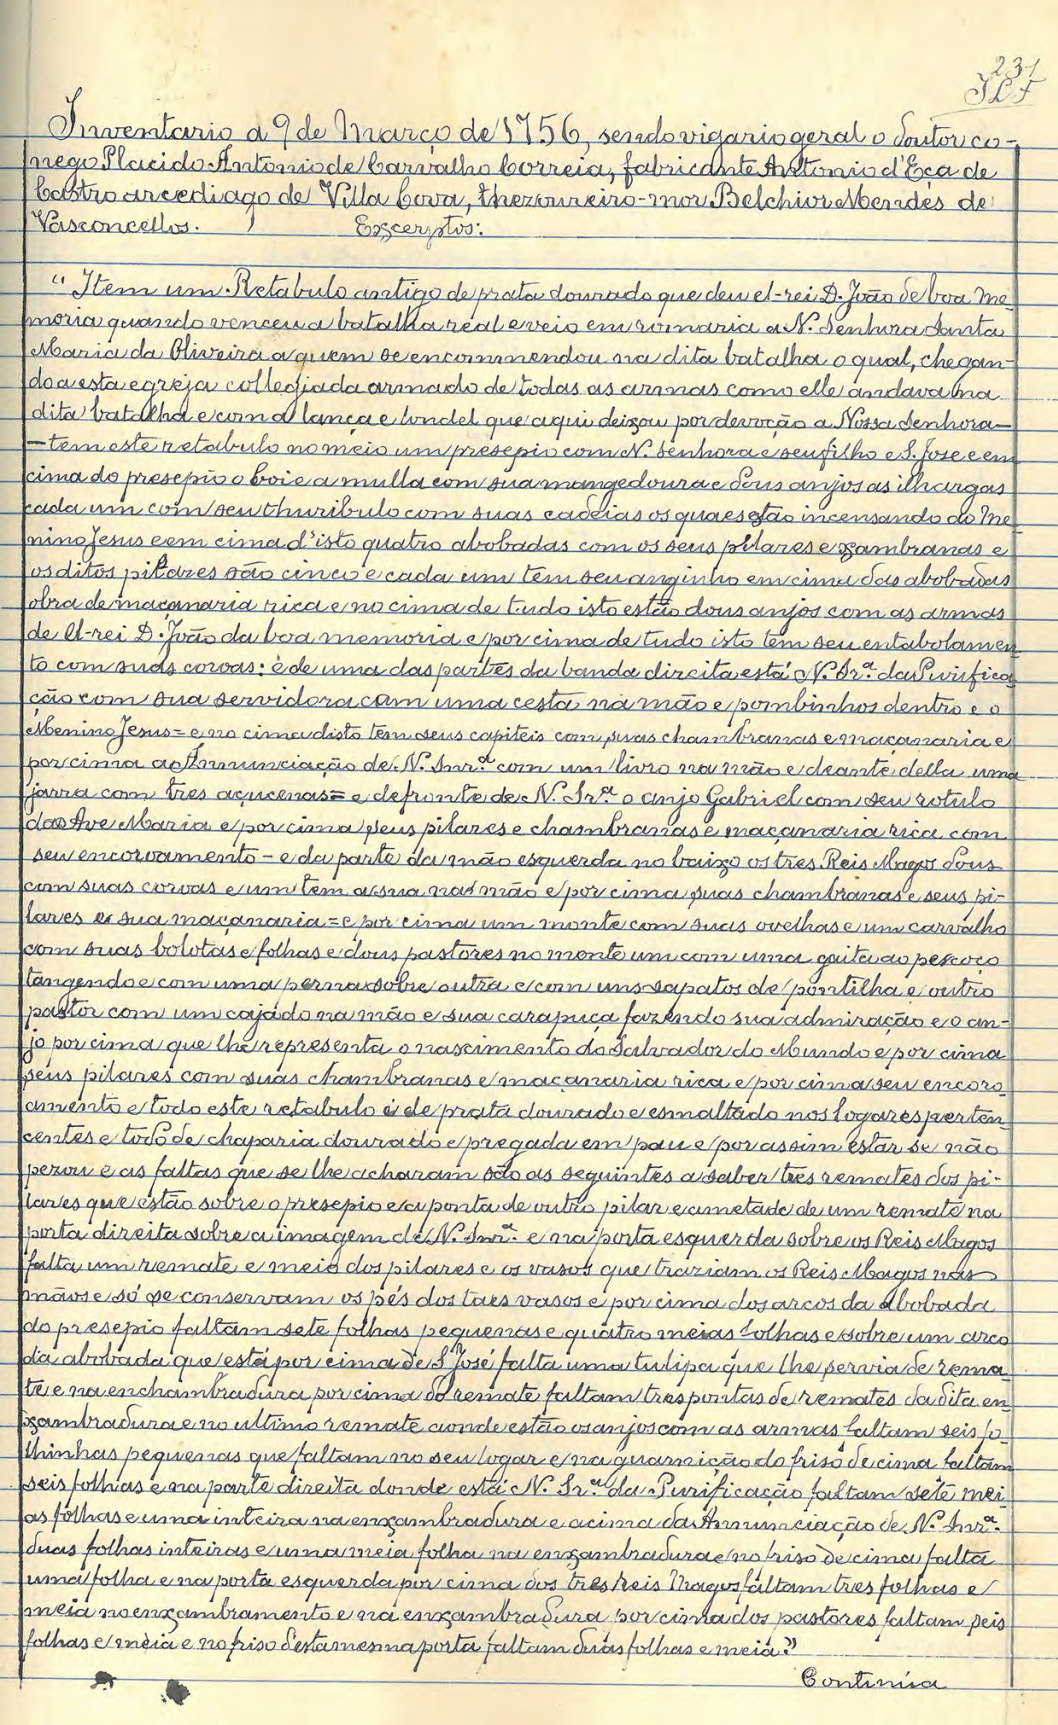 231
JLF
Inventario a 9 de Março de 1756, sendo vigario geral o doutor co-
nego Placido Antonio de Carvalho Correia, fabricante Antonio d'Eça de
Castro arcediago de Villa Cova, thezoureiro-mor Belchior Mendes de
Vasconcellos. Excerptos:
"Item um Retabulo antigo de prata dourado que deu el-rei D. João de boa me-
moria quando venceu a batalha real e veio em romaria a N. Senhora Santa
Maria da Oliveira a quem se encommendou na dita batalha o qual, chegan-
do a esta egreja collegiada armado de todas as armas como elle andava na
dita batalha e com a lança e londel que aqui deixou por devoção a Nossa Senhora—
—tem este retabulo no meio um presepio com N. Senhora e seu filho e S. Jose e em
cima do presepio o boi e a mulla com sua mangedoura e dous anjos as ilhargas
cada um com seu thuribulo com suas cadeias os quaes estão incensando ao Me-
nino Jesus e em cima d'isto quatro abobadas com os seus pilares e xambranas e
os ditos pilares são cinco e cada um tem seu anginho em cima das abobadas
obra de maçanaria rica e no cima de tudo isto estão dous anjos com as armas
de El-rei D. João da boa memoria e por cima de tudo isto tem seu entabolamen-
to com suas coroas: e de uma das partes da banda direita está N. Srª. da Purifica-
ção com sua servidora com uma cesta na mão e pombinhos dentro e o
Menino Jesus = e no cima disto tem seus capiteis com suas chambranas e maçanaria e
por cima a Annunciação de N. Snrª com um livro na mão e deante della uma
jarra com tres açucenas = e defronte de N. Srª. o anjo Gabriel com seu rotulo
da Ave Maria e por cima seus pilares e chambranas e maçanaria rica com
seu encoroamento - e da parte da mão esquerda no baixo os tres Reis Magos dous
com suas coroas e um tem a sua na mão e por cima suas chambranas e seus pi-
lares e sua maçanaria = e por cima um monte com suas ovelhas e um carvalho
com suas bolotas e folhas e dous pastores no monte um com uma gaita ao pescoço
tangendo e com uma perna sobre outra e com uns sapatos de pontilha e outro
pastor com um cajado na mão e sua carapuça fazendo sua admiração e o an-
jo por cima que lhe representa o nascimento do Salvador do Mundo e por cima
seus pilares com suas chambranas e maçanaria rica e por cima seu encoro-
amento e todo este retabulo é de prata dourado e esmaltado nos logares perten-
centes e todo de chaparia dourado e pregada em pau e por assim estar se não
pezou e as faltas que se lhe acharam são as seguintes a saber tres remates dos pi-
lares que estão sobre o presepio e a ponta de outro pilar e ametade de um remate na
porta direita sobre a imagem de N. Snrª. e na porta esquerda sobre os Reis Magos
falta um remate e meio dos pilares e os vasos que traziam os Reis Magos nas
mãos e só se conservam os pés dos taes vasos e por cima dos arcos da abobada
do presepio faltam sete folhas pequenas e quatro meias folhas e sobre um arco
da abobada que está por cima de S José falta uma tulipa que lhe servia de rema-
te e na enchambradura por cima do remate faltam tres pontas de remates da dita en-
xambradura e no ultimo remate aonde estão os anjos com as armas faltam seis fo-
lhinhas pequenas que faltam no seu logar e na guarnição do friso de cima faltam
seis folhas e na parte direita donde está N. Srª. da Purificação faltam sete mei-
as folhas e uma inteira na enxambradura e acima da Annunciação de N. Snrª.
duas folhas inteiras e uma meia folha na enxambradura e no friso de cima falta
uma folha e na porta esquerda por cima dos tres Reis Magos faltam tres folhas e
meia no enxambramento e na enxambradura por cima dos pastores faltam seis
folhas e meia e no friso desta mesma porta faltam duas folhas e meia."
Continúa